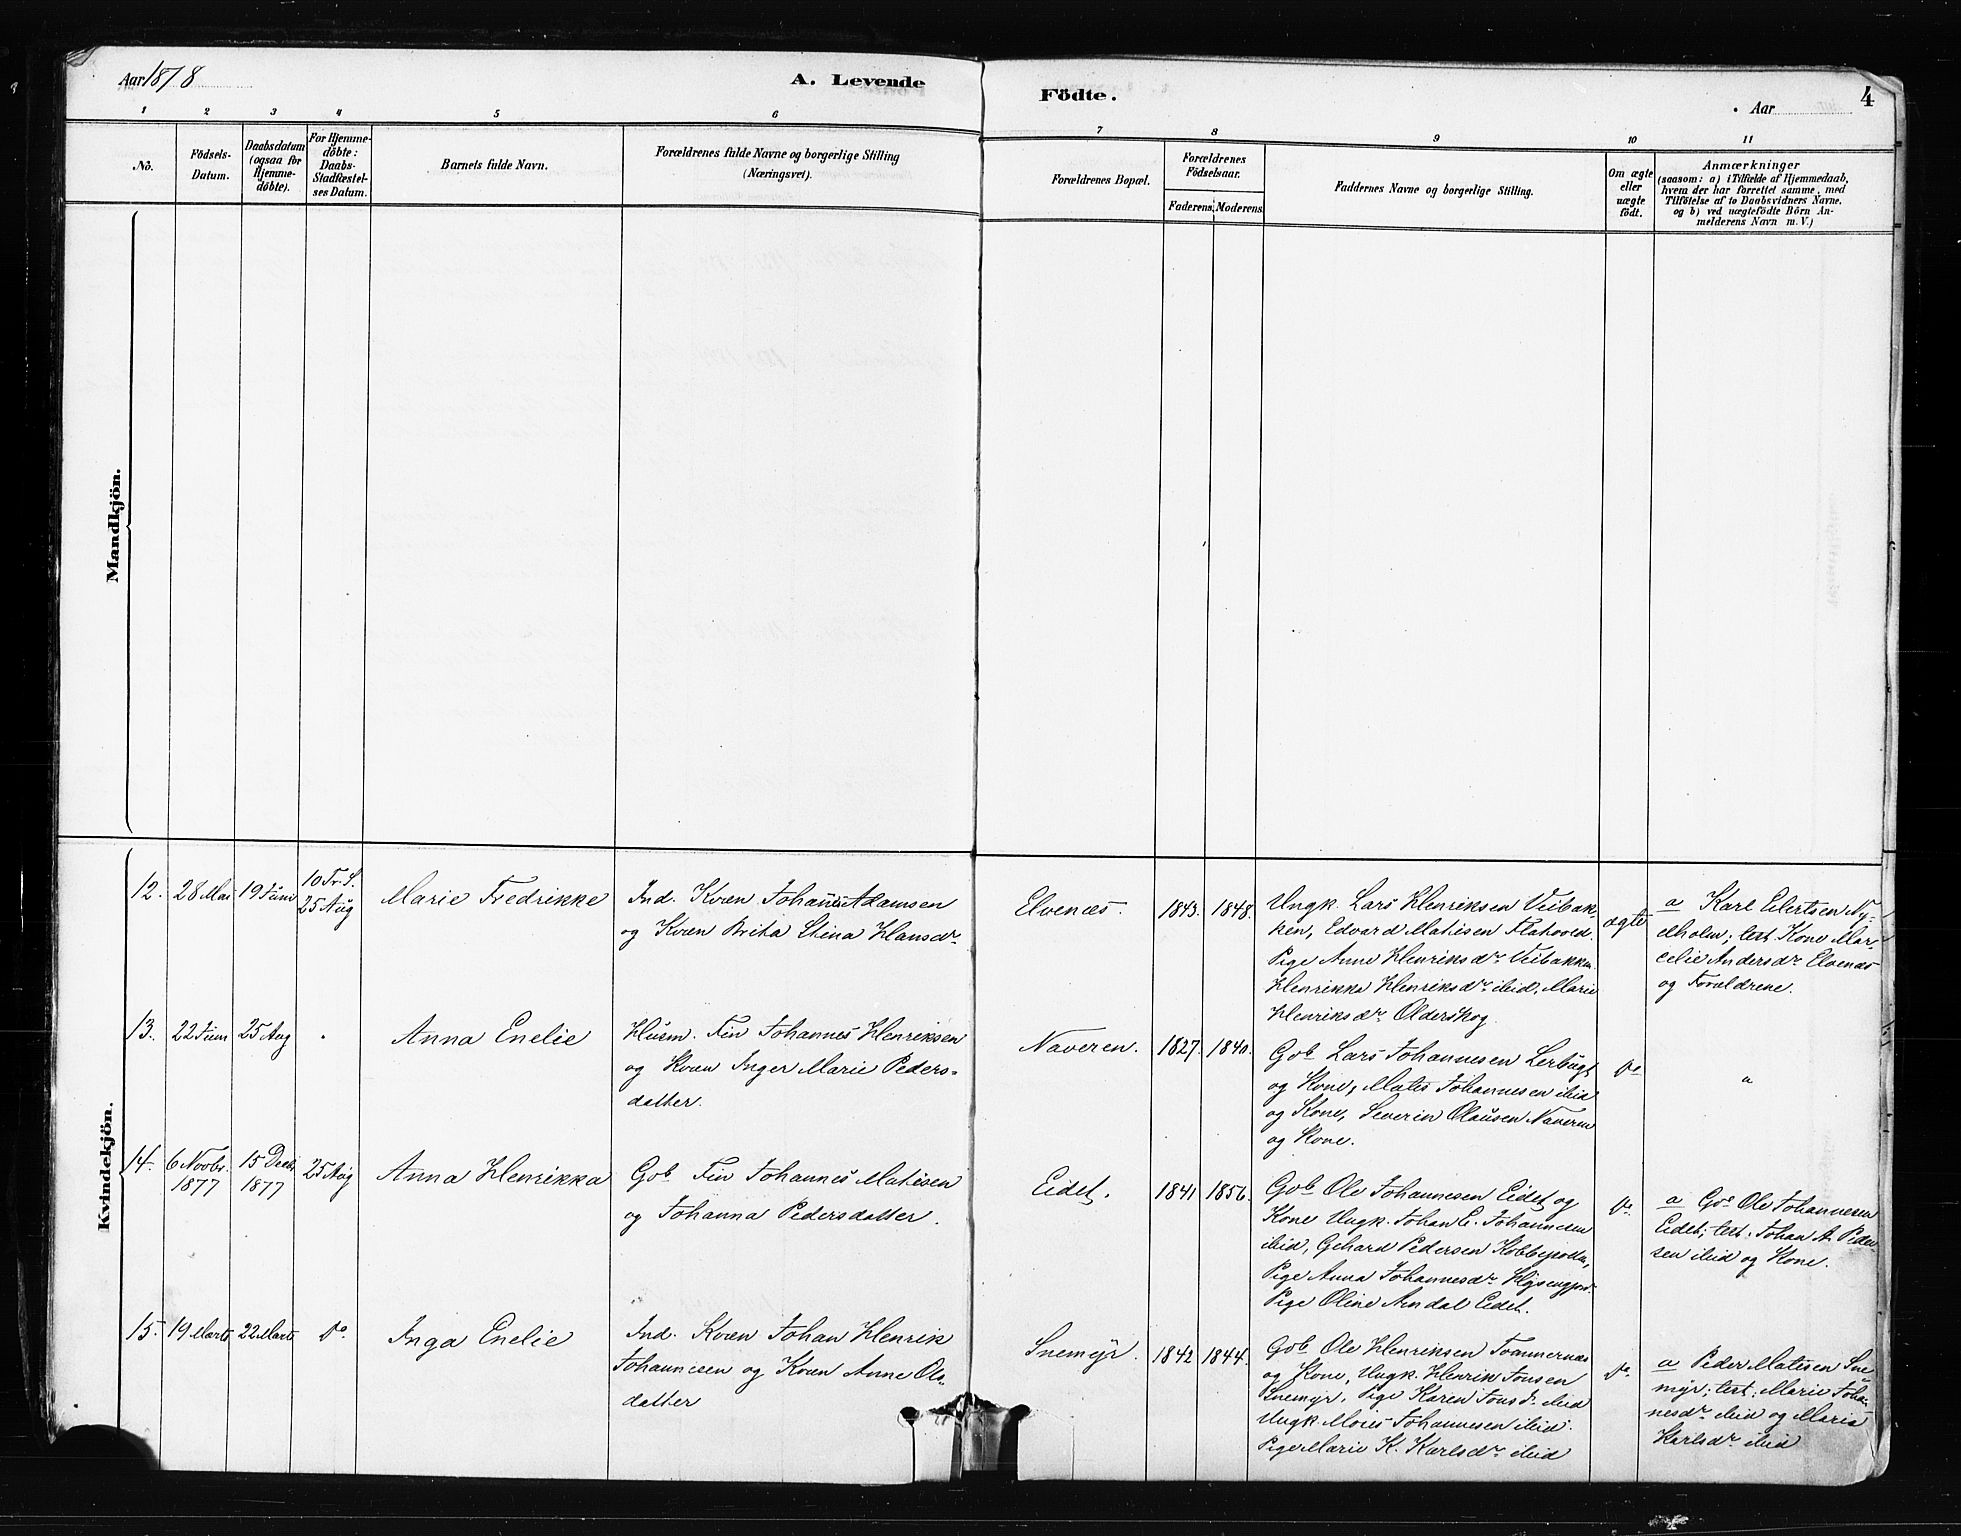 Aar 1878
A. Levende
Födte.
Aar
4
1 2 3 4 5 6 7 8 9 10 11
No.
Födsels-
Datum.
Daabsdatum
(ogsaa for
Hjemme-
döbte).
For Hjemme-
döbte:
Daabs-
Stadfæstel-
ses Datum.
Barnets fulde Navn.
Forældrenes fulde Navne og borgerlige Stilling
(Næringsvei).
Forældrenes Bopæl.
Forældrenes
Födselsaar.
Faderens. Moderens.
Faddernes Navne og borgerlige Stilling.
Om ægte
eller
uægte
födt.
Anmærkninger
(saasom: a) i Tilfælde af Hjemmedaab,
hvem der har forrettet samme, med
Tilföielse af to Daabsvidners Navne,
og b) ved uægtefödte Börn An-
melderens Navn m. V.)
Mandkjön.
Kvindekjön.
12. 28 Mai 19 Juni
10 Tr. S.
25 Aug
Marie Fredrikke
Ind. Kvæn Johannes Adamsen
og Kvæn Brita Stina Hansdr.
Elvenæs. 1843. 1848.
Ungk. Lars Henriksen Veibak-
ken, Edvard Matisen Flatvoed.
Pige Anne Henriksdr. Veibakken
Henrikka Henriksdr. ibid, Marie
Henriksdr. Olderskog
ægte
a Karl Eilertsen Ny-
elholm; test. Kone Mar-
celie Andersdr. Elvenæs
og Forældrene.
13. 22 Juni 25 Aug "
Anna Enelie
Husm. Fin Johannes Henriksen
og Kvæn Inger Marie Peders-
datter.
Naveren. 1827. 1840.
Gbr Lars Johannesen Lerbugt
og Kone, Matis Johannesen ibid
og Kone, Severin Olausen Naveren
og Kone.
do "
14. 6 Novbr.
1877
15 Decb.
1877
25 Aug
Anna Henrikka
Gbr Fin Johannes Matisen
og Johanna Pedersdatter.
Eidet. 1841 1856.
Gbr Ole Johannesen Eidet og
Kone Ungk. Johan E. Johannesen
ibid, Gerhard Pedersen Kobbepollen,
Pige Anna Johannesdr.
Pige Oline Arndal Eidet.
do.
a Gbr Ole Johannesen
Eidet; test. Johan A. Peder-
sen ibid og Kone.
15. 19 Marts 22 Marts do.
Inga Enelie
Ind. Kvæn Johan Henrik
Johannesen og Kvæn Anne Ols-
datter
Snemyr. 1842 1844.
Gbr Ole Henriksen Tømmernæs
og Kone, Ungk. Henrik Jonsen
Snemyr, Pige Karen Jonsdr. ibid
Ungk. Moses Johannesen ibid.
Pige Marie K. Karlsdr. ibid
do.
a Peder Matisen Sne-
myr; test: Marie Johan-
nesdr. ibid og Maria
Karlsdr. ibid